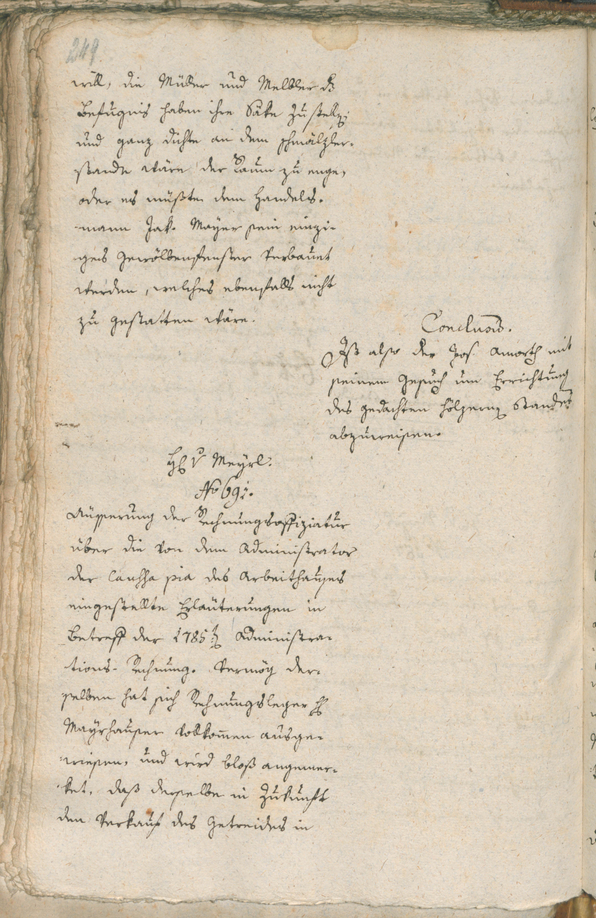 249.
will, die Müller und Melbler die
Befugnis haben ihre Säke zu stellen,
und ganz dichte an dem schmälzler-
stande wäre der Raum zu enge,
oder es müßte dem Handels-
mann Jak. Mayer sein einzi-
ges Gewölbensfenster verbauet
werden, welches ebenfalls nicht
zu gestatten wäre.
Conclusum.
Ist also der Jos. Amorth mit
seinem Gesuch um Errichtung
des gedachten hölzernen Standes
abzuweisen.
H. v. Mayrl.
No 691.
Äusserung der Rechnungsoffiziatur
über die von dem Administrator
der Caussa pia des Arbeithauses
eingestellte Erläuterungen in
Betreff der 1785 Administra-
tions-Rechnung. Vermög der-
selben hat sich Rechnungsleger H.
Mayrhauser vollkommen ausge-
wiesen, und wird bloß angemer-
ket, daß derselbe in Zukunft
den Verkauf des Getreides in